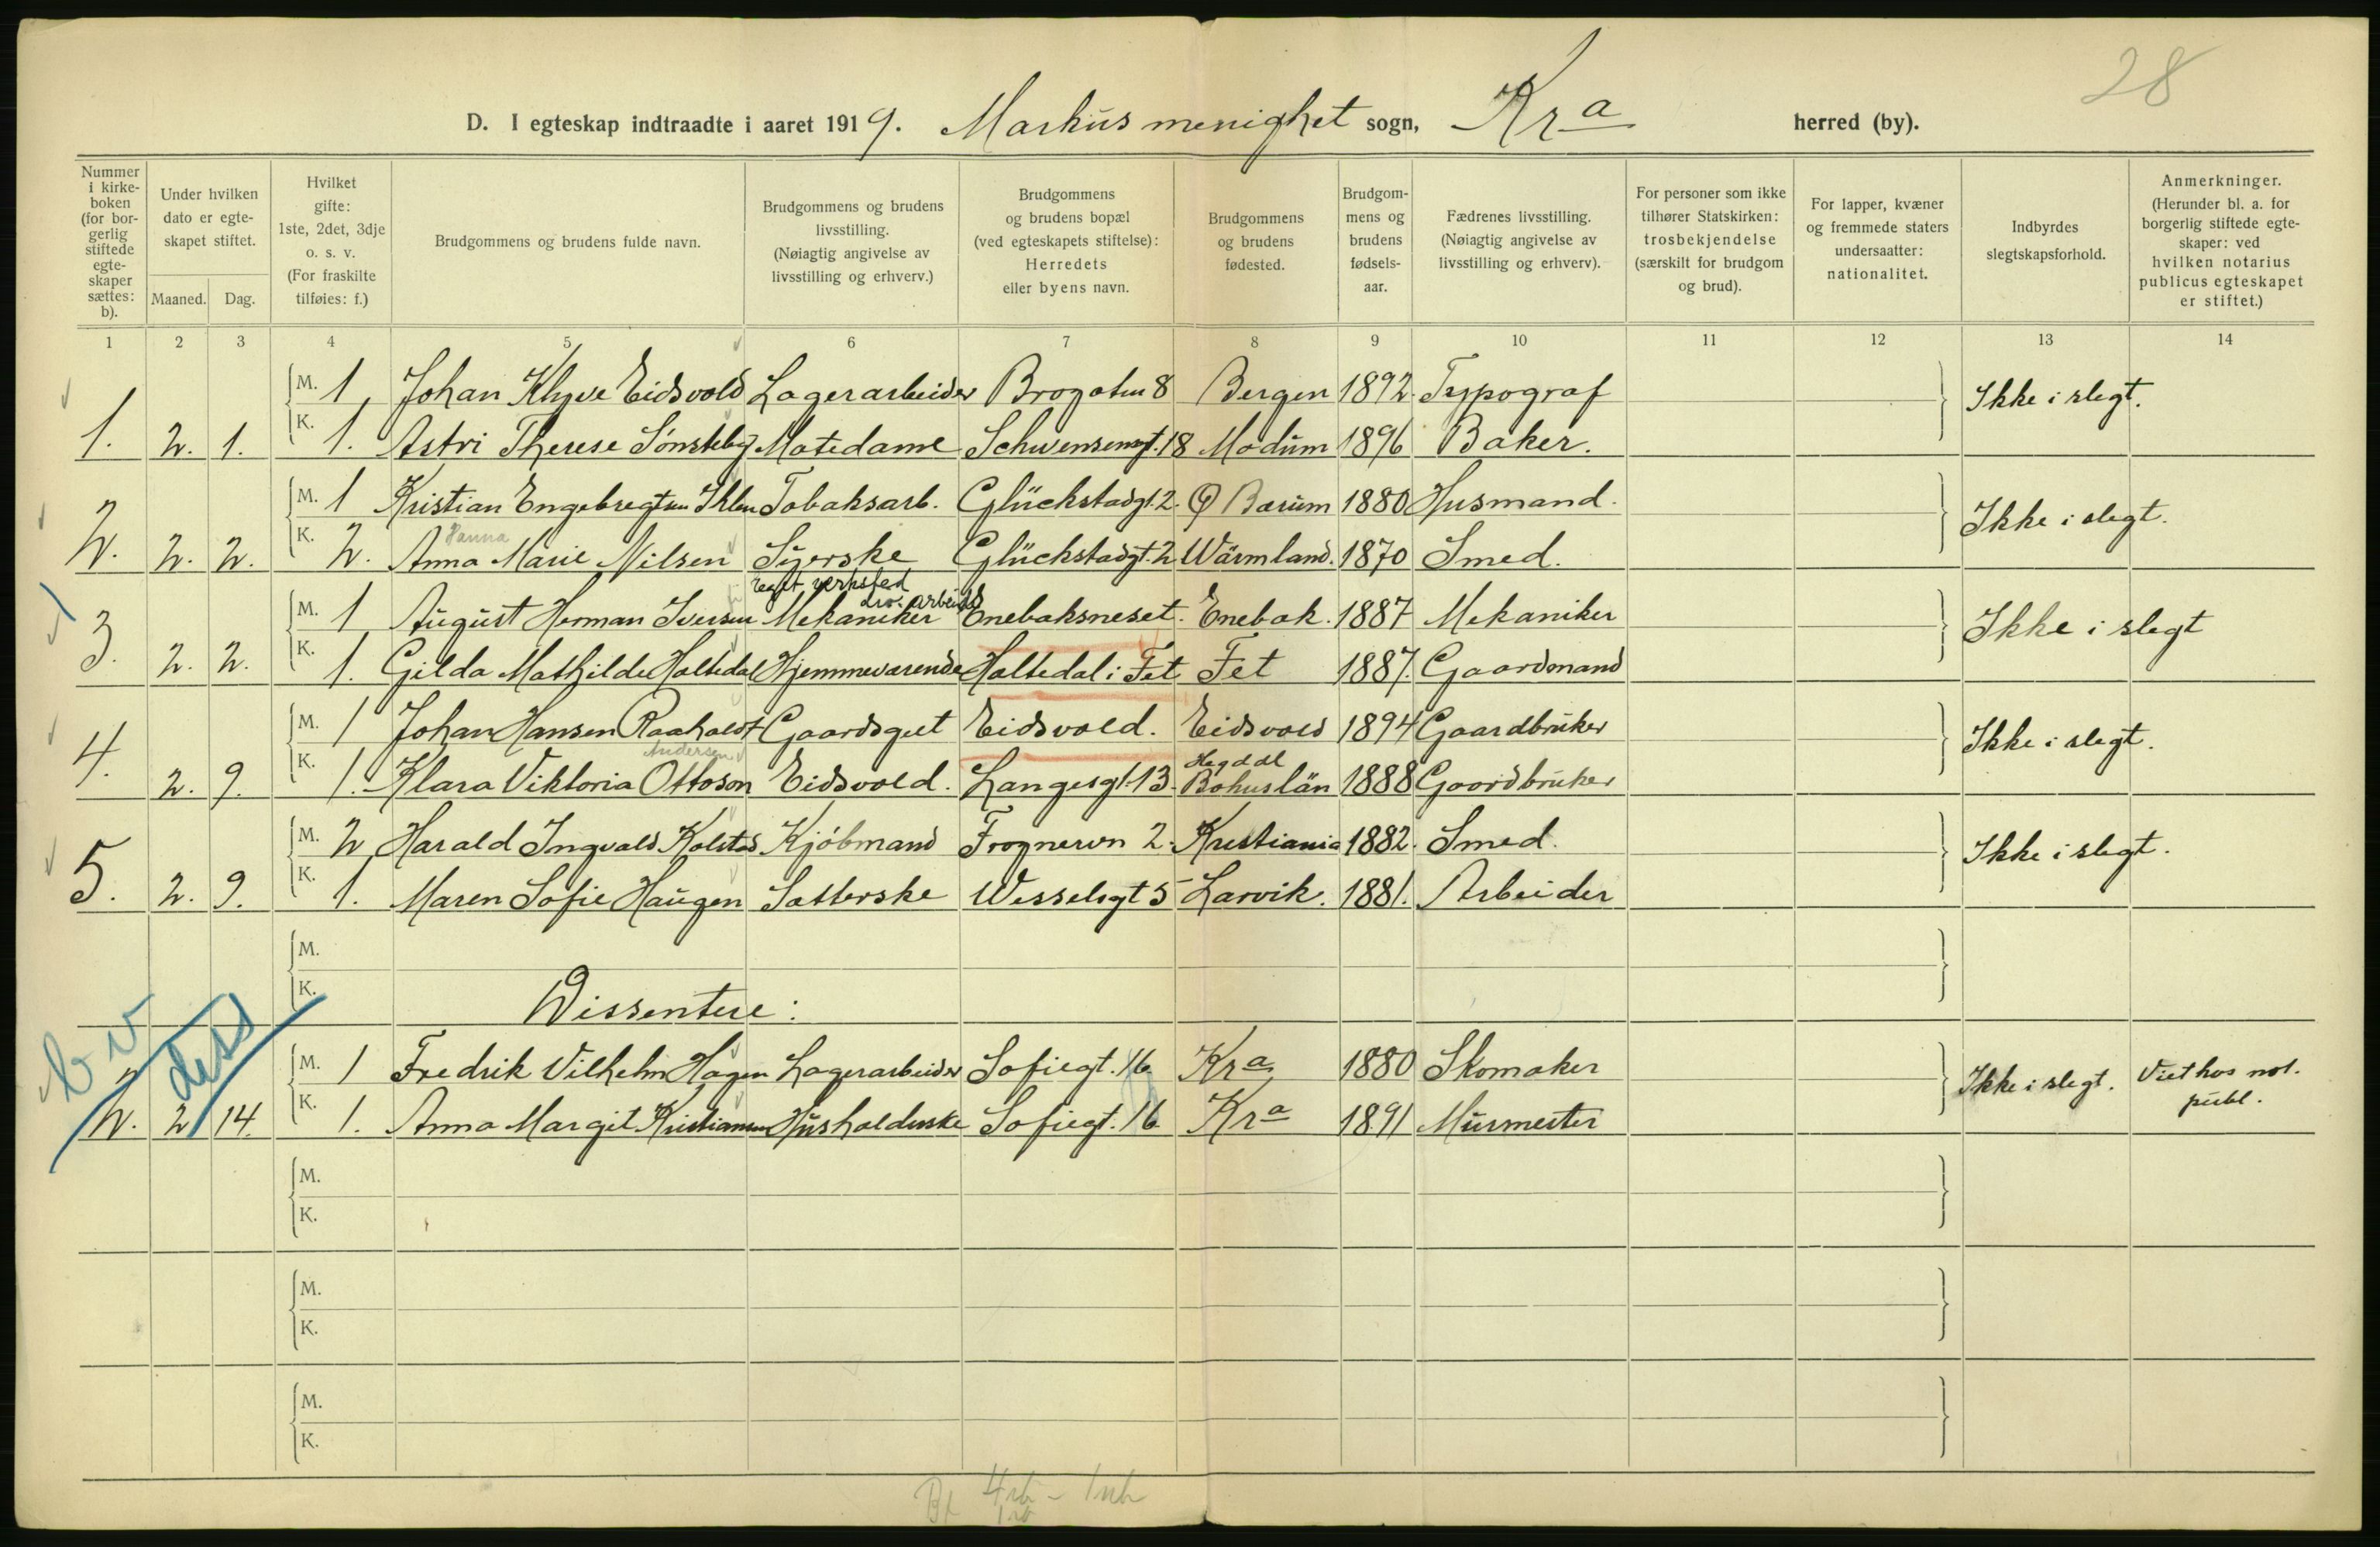 28
D. I egteskap indtraadte i aaret 1919. Markus menighet sogn, Kra herred (by).
Nummer i kirke-boken (for bor-gerlig stiftede egte-skaper sættes: b).
Under hvilken dato er egte-skapet stiftet.
Maaned. Dag.
Hvilket gifte: 1ste, 2det, 3dje o. s. v. (For fraskilte tilføies: f.)
Brudgommens og brudens fulde navn.
Brudgommens og brudens livsstilling. (Nøiagtig angivelse av livsstilling og erhverv.)
Brudgommens og brudens bopæl (ved egteskapets stiftelse): Herredets eller byens navn.
Brudgommens og brudens fødested.
Brudgom-mens og brudens fødsels-aar.
Fædrenes livsstilling. (Nøiagtig angivelse av livsstilling og erhverv).
For personer som ikke tilhører Statskirken: trosbekjendelse (særskilt for brudgom og brud).
For lapper, kvæner og fremmede staters undersaatter: nationalitet.
Indbyrdes slegtskapsforhold.
Anmerkninger. (Herunder bl. a. for borgerlig stiftede egte-skaper: ved hvilken notarius publicus egteskapet er stiftet.)
1 2 3 4 5 6 7 8 9 10 11 12 13 14
M. 1 Johan Klyve Eidsvold Lagerarbeider 8 Bergen 1892 Typograf Ikke i slegt.
1. 2. 1. K. 1. Astri Therese Sønsteby Matedame Schwensensgt. 18 Modum 1896 Baker.
M. 1 Kristian Engebregtsen Ihlen Tobaksarb. Glückstadgt. 2. Bærum 1880 Husmand. Ikke i slegt.
Hanna
2. 2. 2. K. 2. Anna Marie Nilsen Syerske Glückstadgt. 2 Wärmland. 1870 Smed.
Eget verksted
div. arbeide
M. 1 August Herman Iversen Mekaniker Enebaksneset. Enebak. 1887 Mekaniker Ikke i slegt
3. 2. 2. K. 1. Gilda Mathilde Haltedal Hjemmeværende Haltedal i Fet Fet 1887. Gaardmand
M. 1 Johan Hansen Raaholdt Gaardsgut Eidsvold. Eidsvold 1894 Gaardbruker Ikke i slegt.
Andersen
4. 2. 9. K. 1. Klara Viktoria Ottoson Eidsvold. Langesgt. 13. Bohuslän 1888 Gaardbruker
M. 2 Harald Ingvald Kolstad Kjøbmand Frognervn 2. Kristiania 1882. Smed. Ikke i slegt.
5. 2. 9. K. 1. Maren Sofie Haugen Sætterske Wesselsgt 5 Larvik. 1881. Arbeider
M.
K. Dissentere:
b v diss
M. 1 Fredrik Vilhelm Hagen Lagerarbeider Sofiegt. 16 Kra 1880 Skomaker Ikke i slegt. Viet hos not. publ.
2. 2 14. K. 1. Anna Margit Kristiansen Husholderske Sofiegt. 16 Kra 1891 Murmester
M.
K.
M.
K.
M.
K.